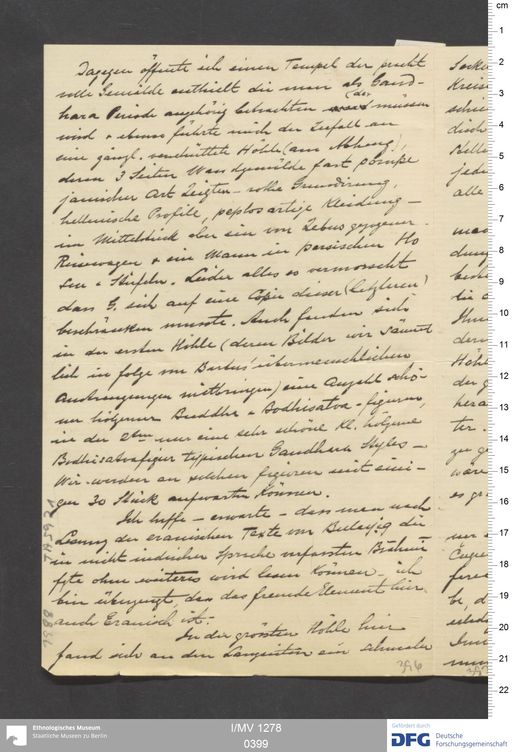 Dagegen öffnete ich einen Tempel der pracht
volle Gemälde enthielt die man als Gand-
hara Periode angehörig betrachten (der) müssen
wird & ebenso führte mich der Zufall an
eine gänzl. verschüttete Höhle (am Abhang),
deren 3 Seiten Wandgemälde fast pompe
janischer Art zeigten – rothe Grundirung,
hellenische Profile, peplosartige Kleidung –
im Mittelstück aber ein von Zebus gezogener
Reisewagen & ein Mann in persischen Ho
sen & Stiefeln. Leider alles so vermorscht
dass G. sich auf eine Copie dieser (letzteren)
beschränken musste. Auch fanden sich
in der ersten Höhle (deren Bilder wir sämmt
lich in folge von Bartus' übermenschlichen
Anstrengungen mitbringen) eine Anzahl schö-
ner hölzerner Buddha & Bodhisatva-figuren,
in der 2ten nur eine sehr schöne kl. hölzerne
Bodhisatvafigur typischen Gandhara Styles –
Wir werden an solchen figuren mit eini-
gen 30 Stück aufwarten können.
Ich hoffe – erwarte – dass man nach
Lesung der eranischen Texte von Bulayiq die
in nicht indischer Sprache verfassten
ohne weiteres wird lesen können. ich
bin überzeugt, dass das fremde Element hier
auch Eranisch ist. –
In der grössten Höhle hier
fand sich an den Langseiten ein schmaler
396
397
cm
1
2
3
4
5
6
7
8
9
10
11
12
13
14
15
16
17
18
19
20
21
22
Ethnologisches Museum
Staatliche Museen zu Berlin
I/MV 1278
0399
Gefördert durch
DFG Deutsche
Forschungsgemeinschaft